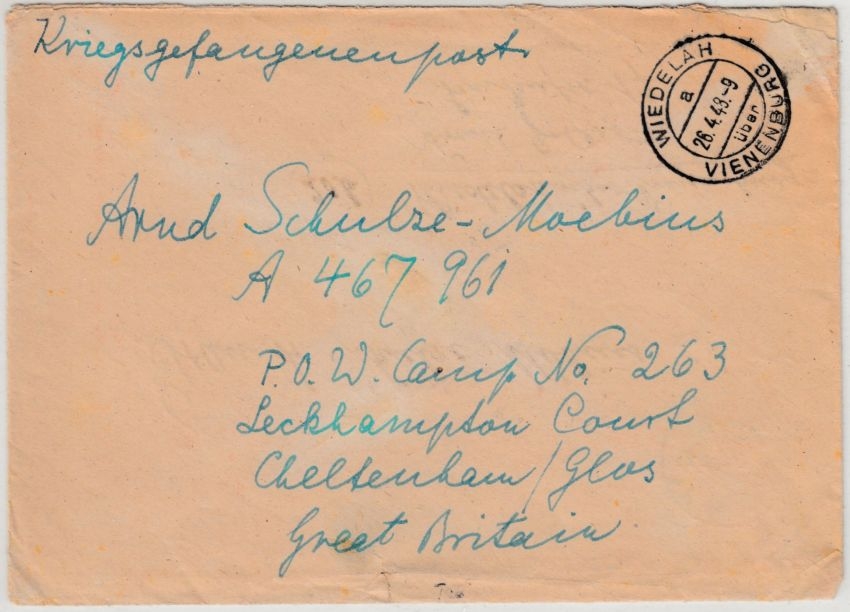 Kriegsgefangenenpost
WIEDELAH
a
26.4.48.-9
über
VIENENBURG
Arnd Schulze-Moebius
A 467 961
P.O.W. Camp No. 263
Leckhampton Court
Cheltenham/Glos
Great Britain